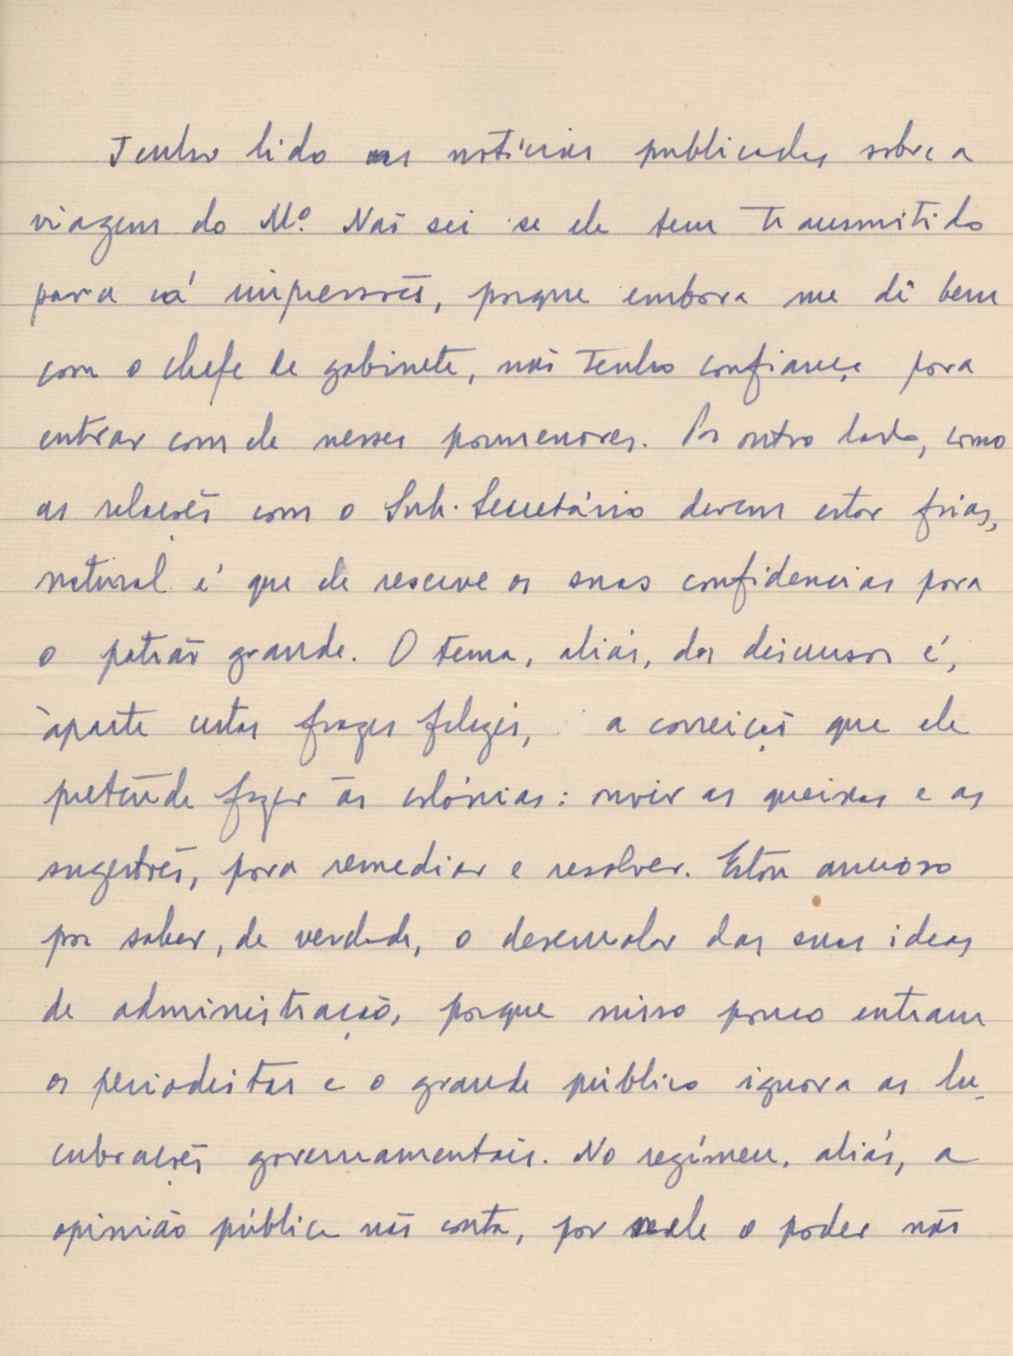 Tenho lido as notícias publicadas sobre a
viagem do Mº. Não sei se ele tem transmitido
para cá impressões, porque embora me dê bem
com o chefe de gabinete, não tenho confiança para
entrar com ele nesses pormenores. Por outro lado, como
as relações com o Sub-Secretário devem estar frias,
natural é que ele reserve as suas confidencias para
o patrão grande. O tema, aliás, dos discursos é,
àparte certas frazes felizes, a correição que ele
pretende fazer às colónias: ouvir as queixas e as
sugestões, para remediar e resolver. Estou ancioso
por saber, de verdade, o desenrolar das suas ideas
de administração, porque nisso pouco entram
os periodistas e o grande público ignora as lu-
cubrações governamentais. No regímen, aliás, a
opinião pública não conta, por nele o poder não